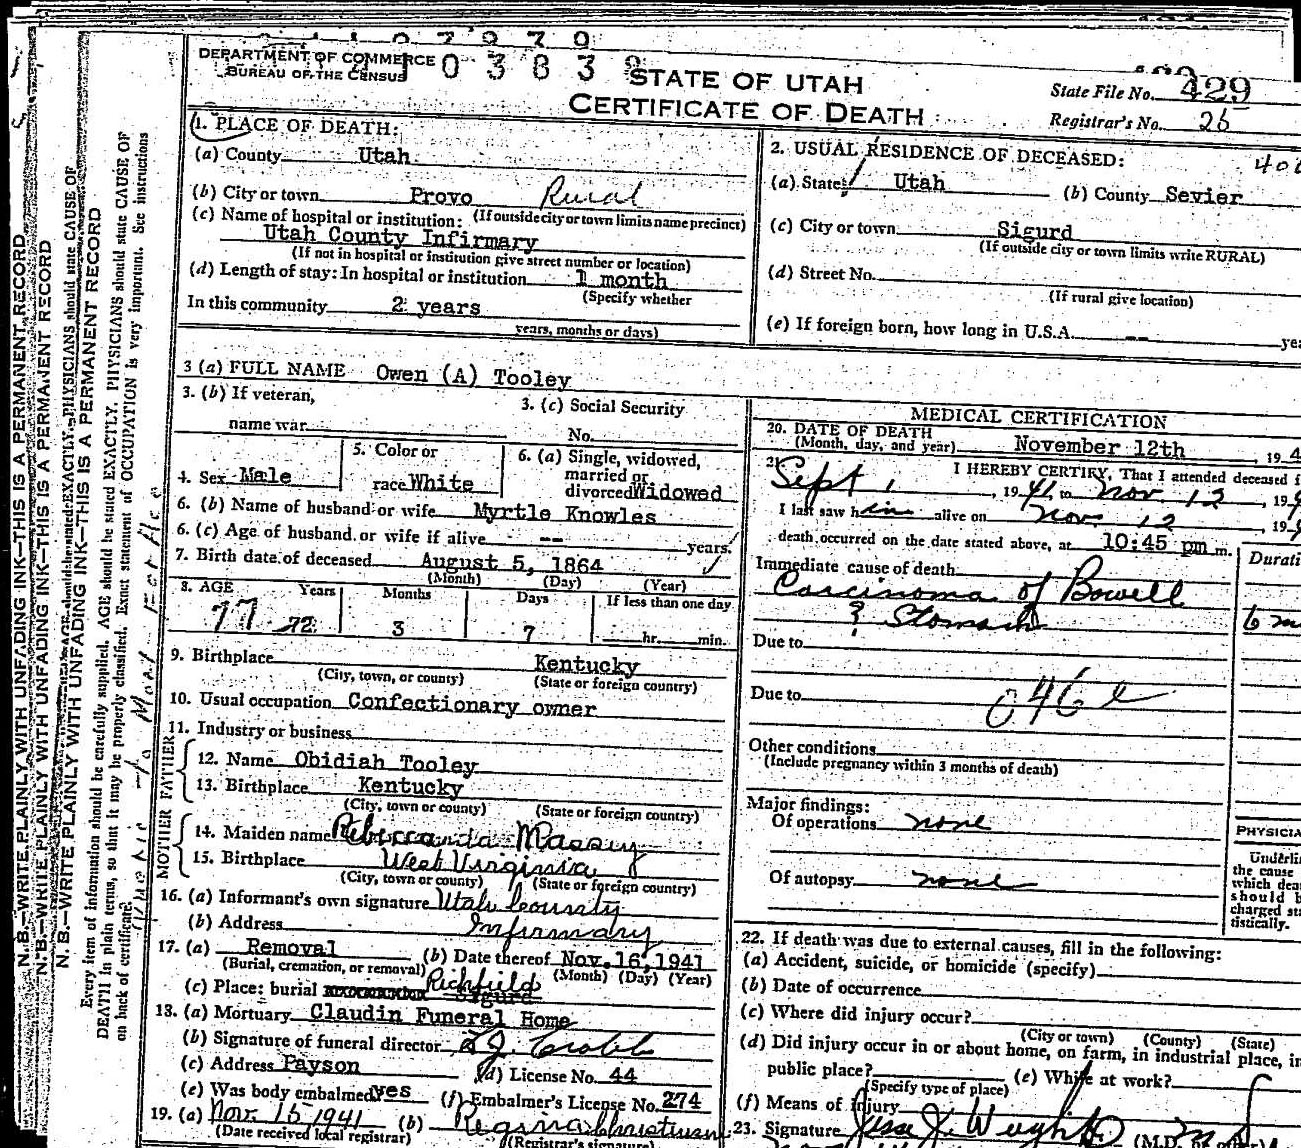 DEPARTMENT OF COMMERCE
BUREAU OF THE CENSUS
STATE OF UTAH
CERTIFICATE OF DEATH
State File No. 429
Registrar's No. 26
1. PLACE OF DEATH:
(a) County Utah
(b) City or town Provo Rural
(If outside city or town limits name precinct)
(c) Name of hospital or institution:
Utah County Infirmary
(If not in hospital or institution give street number or location)
(d) Length of stay: In hospital or institution 1 month
(Specify whether
In this community 2 years
years, months or days)
2. USUAL RESIDENCE OF DECEASED:
(a) State Utah (b) County Sevier
(c) City or town Sigurd
(If outside city or town limits write RURAL)
(d) Street No.
(If rural give location)
(e) If foreign born, how long in U.S.A. --
3 (a) FULL NAME Owen (A) Tooley
3. (b) If veteran,
name war
3. (c) Social Security
No.
4. Sex Male
5. Color or
race White
6. (a) Single, widowed,
married or
divorced Widowed
6. (b) Name of husband or wife Myrtle Knowles
6. (c) Age of husband or wife if alive -- years
7. Birth date of deceased August 5, 1864
(Month) (Day) (Year)
8. AGE Years Months Days If less than one day
77 72 3 7 hr. min.
9. Birthplace Kentucky
(City, town, or county) (State or foreign country)
10. Usual occupation Confectionary owner
11. Industry or business
FATHER
12. Name Obidiah Tooley
13. Birthplace Kentucky
(City, town or county) (State or foreign country)
MOTHER
14. Maiden name Massey
15. Birthplace West Virginia
(City, town or county) (State or foreign country)
16. (a) Informant's own signature Utah County
(b) Address Infirmary
17. (a) Removal (b) Date thereof Nov. 16, 1941
(Burial, cremation, or removal) (Month) (Day) (Year)
(c) Place: burial Richfield
Sigurd
18. (a) Mortuary Claudin Funeral Home
(b) Signature of funeral director
(c) Address Payson (d) License No. 44
(e) Was body embalmed yes (f) Embalmer's License No. 274
19. (a) Nov. 15 1941 (b)
(Date received local registrar) (Registrar's signature)
MEDICAL CERTIFICATION
20. DATE OF DEATH
(Month, day, and year) November 12th, 194
21. I HEREBY CERTIFY, That I attended deceased
Sept 1, 1941 to Nov. 12, 19
I last saw him alive on Nov. 12, 19
death occurred on the date stated above, at 10:45 pm m.
Immediate cause of death
Carcinoma of Bowell
& Stomach
Due to
Due to
046
Other conditions
(Include pregnancy within 3 months of death)
Major findings:
Of operations none
Of autopsy none
PHYSICIA
Underlin
the cause
which dea
should b
charged sta
tistically.
22. If death was due to external causes, fill in the following:
(a) Accident, suicide, or homicide (specify)
(b) Date of occurrence
(c) Where did injury occur?
(City or town) (County) (State)
(d) Did injury occur in or about home, on farm, in industrial place, in
public place? (e) While at work?
(Specify type of place)
(f) Means of injury
23. Signature
N. B.—WRITE PLAINLY WITH UNFADING INK—THIS IS A PERMANENT RECORD
N. B.—WRITE PLAINLY WITH UNFADING INK—THIS IS A PERMANENT RECORD
N. B.—WRITE PLAINLY WITH UNFADING INK—THIS IS A PERMANENT RECORD
Every item of information should be carefully supplied. AGE should be stated EXACTLY. PHYSICIANS should state CAUSE OF
DEATH in plain terms, so that it may be properly classified. Exact statement of OCCUPATION is very important. See instructions
on back of certificate.